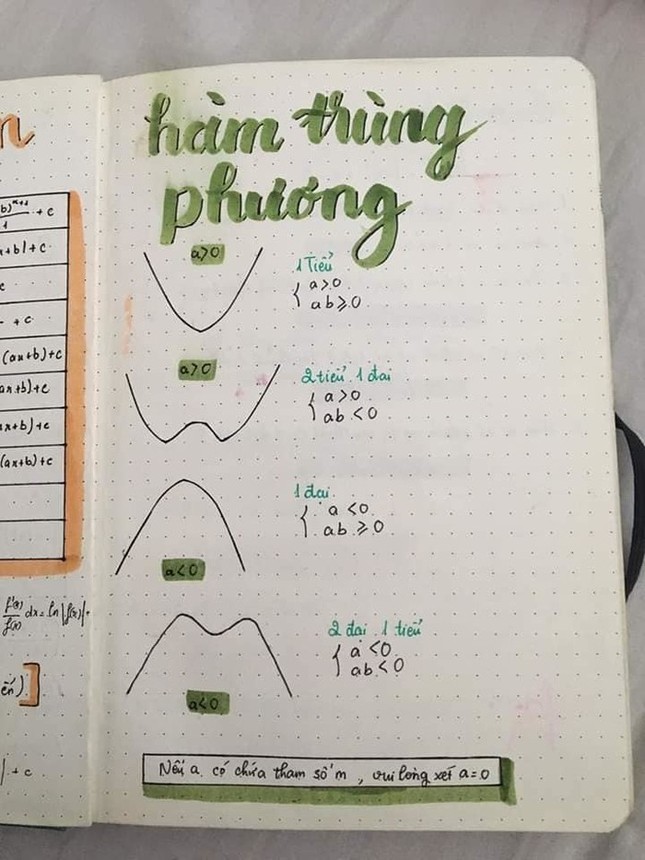 n
b)ⁿ⁺¹ + c
1
x+b|+c
c
+ c
(ax+b)+c
ax+b)+c
ax+b)+c
(ax+b)+c
f'(x)/f(x) dx = ln|f(x)|+
ến)]
| + c
hàm trùng
phương
a>0
1 Tiểu
{ a>0
ab≥0
a>0
2 tiểu 1 đại
{ a>0
ab<0
1 đại
{ a<0
ab≥0
a<0
2 đại 1 tiểu
{ a<0
ab<0
a<0
Nếu a có chứa tham số m, vui lòng xét a=0